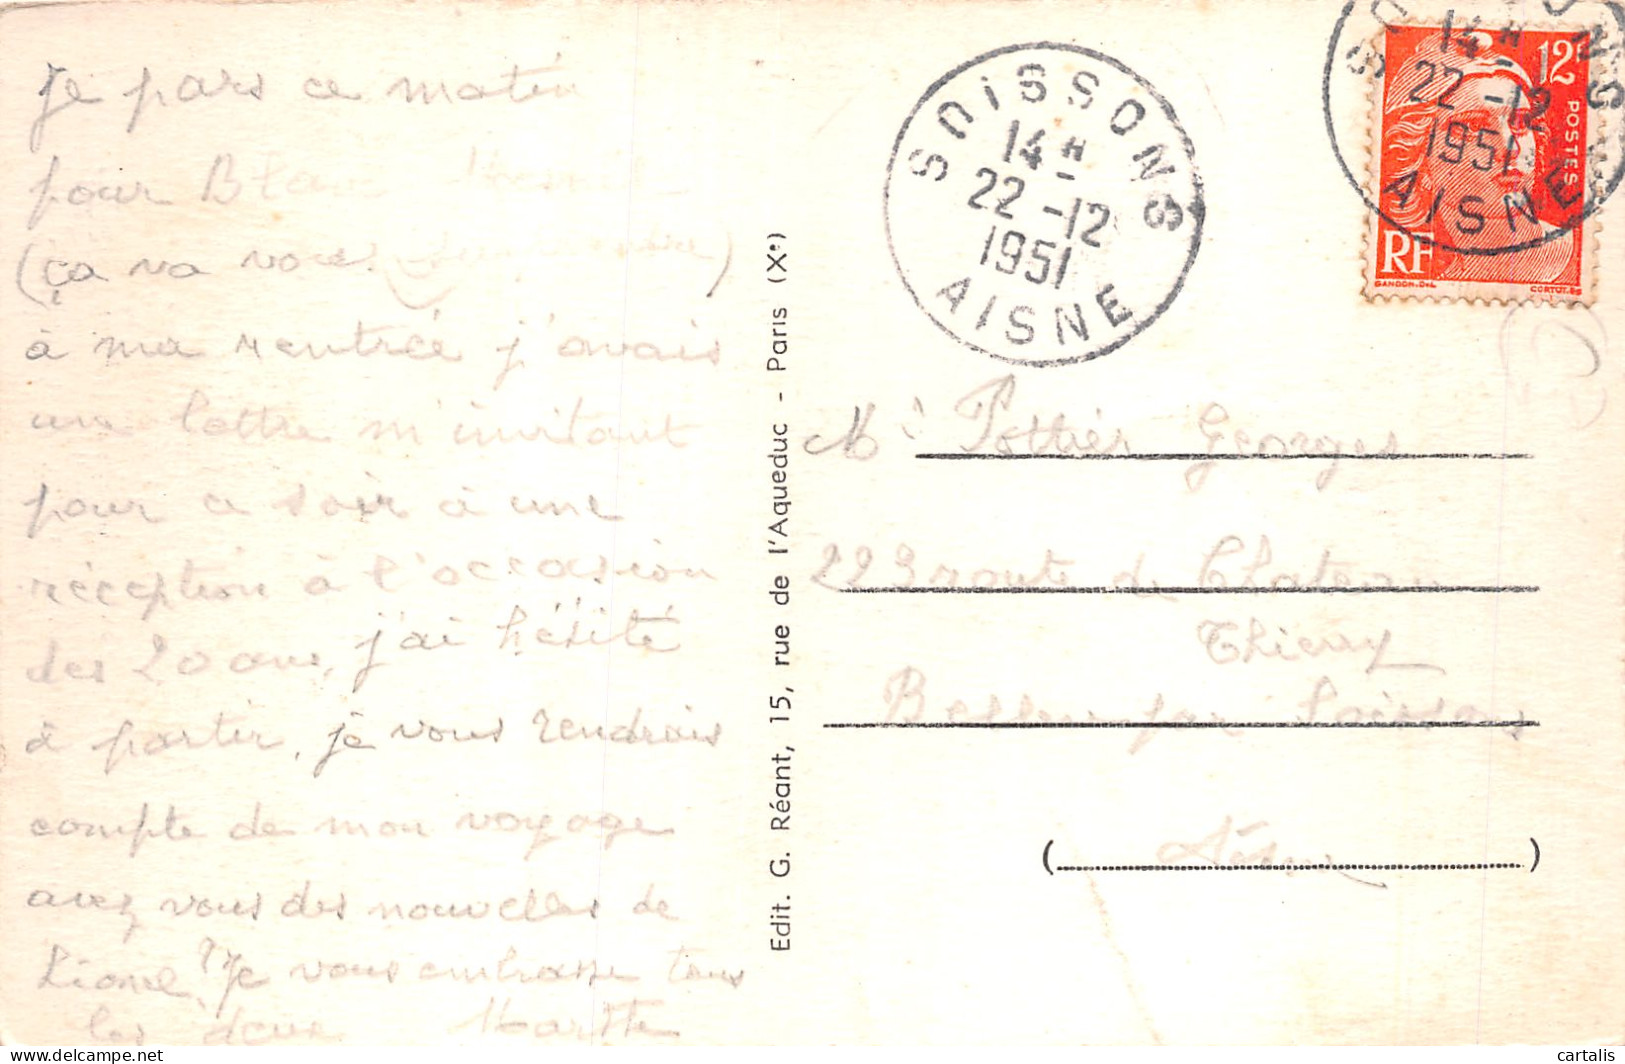 Je pars ce matin
pour
(ça va vous
à ma rentrée j'avais
une lettre m'invitant
pour ce soir à une
réception à l'occasion
des 20 ans, j'ai hésité
à partir, je vous rendrais
compte de mon voyage
avez vous des nouvelles de
Lionel? Je vous embrasse tous
les deux
Edit. G. Réant, 15, rue de l'Aqueduc - Paris (Xe)
SOISSONS
14 H
22 -12
1951
AISNE
SOISSONS
14 H
22 -12
1951
AISNE
12F
POSTES
RF
GANDON.DEL
CORTOT.SC
Mr Pottier Georges
223 route de Chateau
Thierry
par Soissons
Aisne
cartalis